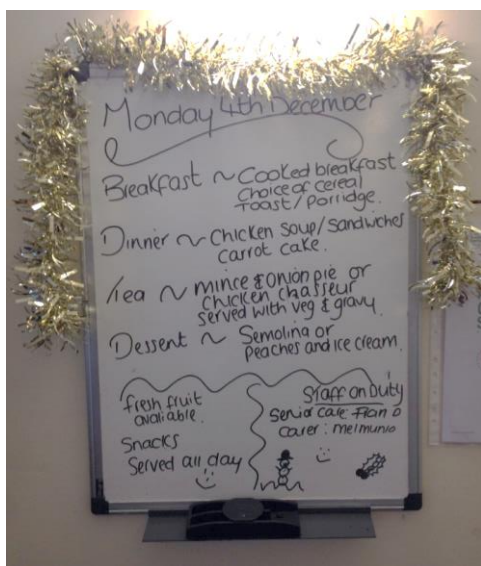 Monday 4th December
Breakfast ~ Cooked breakfast
Choice of cereal
Toast / Porridge.
Dinner ~ Chicken Soup / Sandwiches
Carrot cake.
Tea ~ mince & onion pie or
chicken chasseur
served with veg & gravy
Dessert ~ Semolina or
Peaches and ice cream.
fresh fruit
avaliable.
Snacks
Served all day
Staff on Duty
Senior care:
Carer: